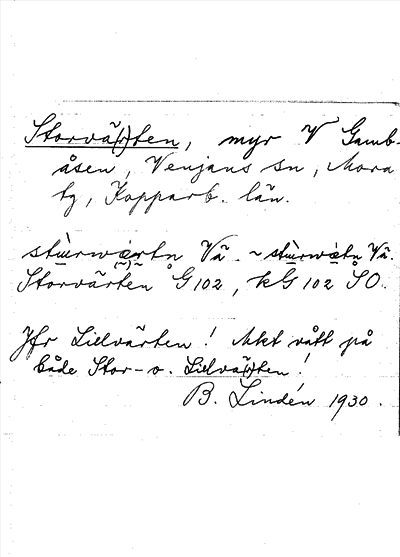 Storvä(r)ten, myr V Gamb-
åsen, Venjans sn, Mora
tg, Kopparb. län.
Vä. ~ Vä.
Storvärten G 102, kG 102 SO.
Jfr Lillvärten! Mkt vått på
både Stor- o. Lillvä(r)ten!
B. Lindén 1930.